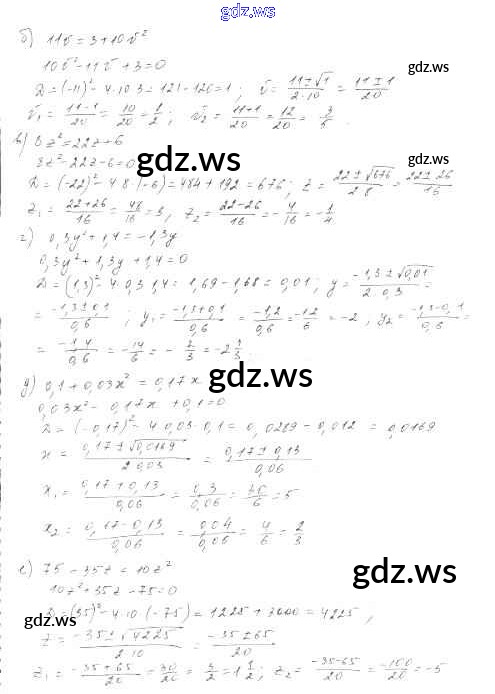 gdz.ws
б) 11v = 3 + 10v²
gdz.ws
10v² - 11v + 3 = 0
D = (-11)² - 4·10·3 = 121 - 120 = 1; v = (11 ± √1)/(2·10) = (11 ± 1)/20
gdz.ws
v₁ = (11 - 1)/20 = 10/20 = 1/2; v₂ = (11 + 1)/20 = 12/20 = 3/5.
в) 8z² = 22z + 6
8z² - 22z - 6 = 0
gdz.ws
D = (-22)² - 4·8·(-6) = 484 + 192 = 676; z = (22 ± √676)/(2·8) = (22 ± 26)/16
z₁ = (22 + 26)/16 = 48/16 = 3, z₂ = (22 - 26)/16 = -4/16 = -1/4
г) 0,3y² + 1,4 = -1,3y
0,3y² + 1,3y + 1,4 = 0
D = (1,3)² - 4·0,3·1,4 = 1,69 - 1,68 = 0,01; y = (-1,3 ± √0,01)/(2·0,3) =
= (-1,3 ± 0,1)/0,6; y₁ = (-1,3 + 0,1)/0,6 = -1,2/0,6 = -12/6 = -2, y₂ = (-1,3 - 0,1)/0,6 =
= -1,4/0,6 = -14/6 = -7/3 = -2 1/3
gdz.ws
д) 0,1 + 0,03x² = 0,17x
0,03x² - 0,17x + 0,1 = 0
D = (-0,17)² - 4·0,03·0,1 = 0,0289 - 0,012 = 0,0169
x = (0,17 ± √0,0169)/(2·0,03) = (0,17 ± 0,13)/0,06
x₁ = (0,17 + 0,13)/0,06 = 0,3/0,06 = 30/6 = 5
x₂ = (0,17 - 0,13)/0,06 = 0,04/0,06 = 4/6 = 2/3
е) 75 - 35z = 10z²
gdz.ws
10z² + 35z - 75 = 0
D = (35)² - 4·10·(-75) = 1225 + 3000 = 4225,
gdz.ws
z = (-35 ± √4225)/(2·10) = (-35 ± 65)/20
z₁ = (-35 + 65)/20 = 30/20 = 3/2 = 1 1/2; z₂ = (-35 - 65)/20 = -100/20 = -5
gdz.ws